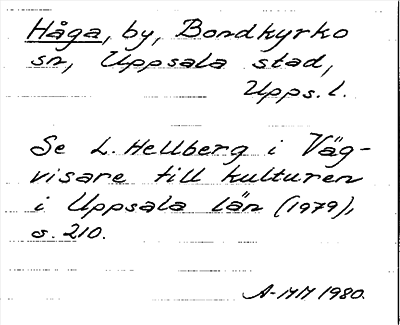 Håga, by, Bondkyrko
sn, Uppsala stad,
Upps. l.
Se L. Hellberg i Väg-
visare till kulturen
i Uppsala län (1979),
s. 210.
A-MM 1980.